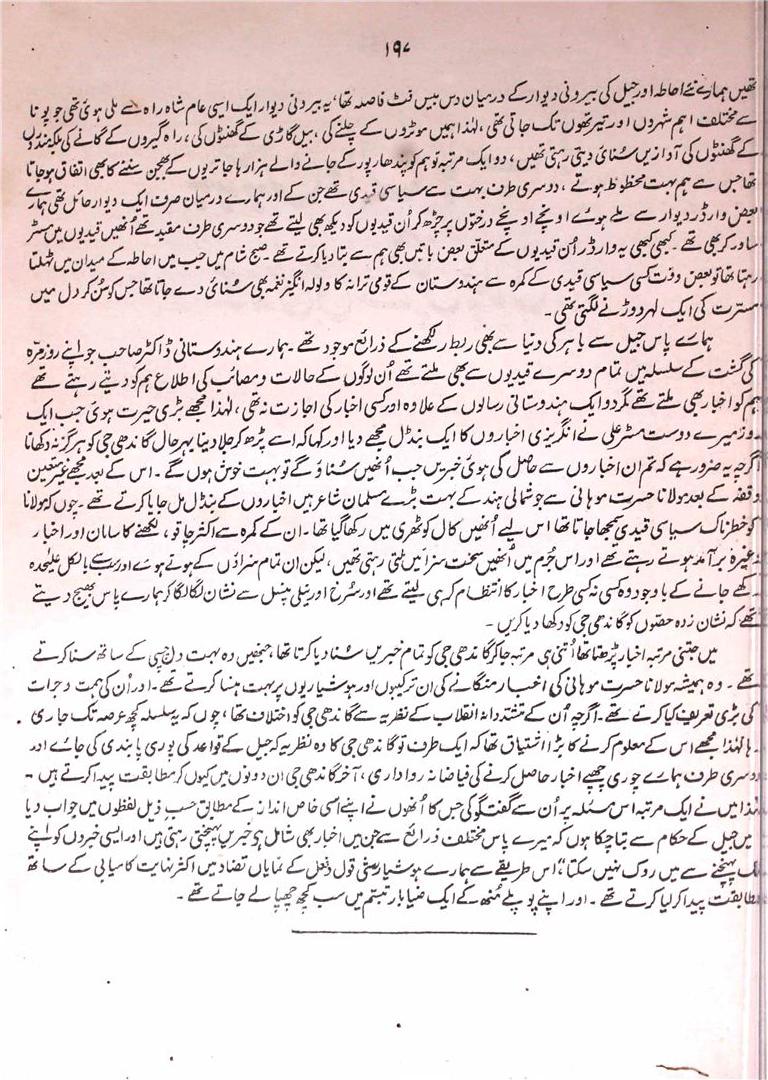 ۱۹۷
تھیں ہمارے نئے احاطہ اور جیل کی بیرونی دیوار کے درمیان دس بیس فٹ فاصلہ تھا، یہ بیرونی دیوار ایک ایسی عام شاہ راہ سے ملی ہوئی تھی جو پونا
سے مختلف اہم شہروں اور تیرتھوں تک جاتی تھی، لہٰذا ہمیں موٹروں کے چلنے کی، بیل گاڑی کے گھنٹوں کی، راہ گیروں کے گانے کی
کے گھنٹوں کی آوازیں سُنائی دیتی رہتی تھیں، دو ایک مرتبہ تو ہم کو پندھارپور کے جانے والے ہزارہا جاتریوں کے بھجن سننے کا بھی اتفاق ہو جاتا
تھا جس سے ہم بہت محظوظ ہوتے، دوسری طرف بہت سے سیاسی قیدی تھے جن کے اور ہمارے درمیان صرف ایک دیوار حائل تھی ہمارے
بعض وارڈر دیوار سے ملے ہوئے اونچے اونچے درختوں پر چڑھ کر اُن قیدیوں کو دیکھ بھی لیتے تھے جو دوسری طرف مقید تھے اُنھیں قیدیوں میں مسٹر
ساورکر بھی تھے۔ کبھی کبھی یہ وارڈر اُن قیدیوں کے متعلق بعض باتیں بھی ہم سے بتا دیا کرتے تھے۔ صبح شام میں جب میں احاطہ کے میدان میں ٹہلتا
رہتا تھا تو بعض وقت کسی سیاسی قیدی کے کمرہ سے ہندوستان کے قومی ترانہ کا ولولہ انگیز نغمہ بھی سُنائی دے جاتا تھا جس کو سُن کر دل میں
مسرت کی ایک لہر دوڑنے لگتی تھی۔
ہمارے پاس جیل سے باہر کی دنیا سے بھی ربط رکھنے کے ذرائع موجود تھے۔ ہمارے ہندوستانی ڈاکٹر صاحب جو اپنے روزمرّہ
کی گشت کے سلسلہ میں تمام دوسرے قیدیوں سے بھی ملتے تھے اُن لوگوں کے حالات و مصائب کی اطلاع ہم کو دیتے رہتے تھے
ہم کو اخبار بھی ملتے تھے مگر دو ایک ہندوستانی رسالوں کے علاوہ اور کسی اخبار کی اجازت نہ تھی، لہٰذا مجھے بڑی حیرت ہوئی جب ایک
روز میرے دوست مسٹر علی نے انگریزی اخباروں کا ایک بنڈل مجھے دیا اور کہا کہ اسے پڑھ کر جلا دینا بہر حال گاندھی جی کو ہرگز نہ دکھانا
اگرچہ یہ ضرور ہے کہ تم ان اخباروں سے حاصل کی ہوئی خبریں جب اُنھیں سُناؤ گے تو بہت خوش ہوں گے۔ اس کے بعد مجھے غیر معین
وقفہ کے بعد مولانا حسرت موہانی سے جو شمالی ہند کے بہت بڑے مسلمان شاعر ہیں اخباروں کے بنڈل مل جایا کرتے تھے۔ چوں کہ مولانا
کو خطرناک سیاسی قیدی سمجھا جاتا تھا اس لیے اُنھیں کال کوٹھری میں رکھا گیا تھا۔ ان کے کمرہ سے اکثر چاقو، لکھنے کا سامان اور اخبار
وغیرہ برآمد ہوتے رہتے تھے اور اس جُرم میں اُنھیں سخت سزائیں ملتی رہتی تھیں، لیکن ان تمام سزاؤں کے ہوتے ہوئے اور سب سے بالکل علیٰحدہ
رکھے جانے کے باوجود وہ کسی نہ کسی طرح اخبار کا انتظام کر ہی لیتے تھے اور سُرخ اور نیلی پنسل سے نشان لگا لگا کر ہمارے پاس بھیج دیتے
تھے کہ نشان زدہ حصّوں کو گاندھی جی کو دکھا دیا کریں۔
میں جتنی مرتبہ اخبار پڑھتا تھا اُتنی ہی مرتبہ جا کر گاندھی جی کو تمام خبریں سُنا دیا کرتا تھا، جنھیں وہ بہت دل چسپی کے ساتھ سنا کرتے
تھے۔ وہ ہمیشہ مولانا حسرت موہانی کی اخبار منگانے کی ان ترکیبوں اور ہوشیاریوں پر بہت ہنسا کرتے تھے۔ اور اُن کی ہمت و جرات
کی بڑی تعریف کیا کرتے تھے۔ اگرچہ اُن کے متشددانہ انقلاب کے نظریہ سے گاندھی جی کو اختلاف تھا، چوں کہ یہ سلسلہ کچھ عرصہ تک جاری
رہا لہٰذا مجھے اس کے معلوم کرنے کا بڑا اشتیاق تھا کہ ایک طرف تو گاندھی جی کا وہ نظریہ کہ جیل کے قواعد کی پوری پابندی کی جائے اور
دوسری طرف ہمارے چوری چھپے اخبار حاصل کرنے کی فیاضانہ رواداری، آخر گاندھی جی ان دونوں میں کیوں کر مطابقت پیدا کرتے ہیں۔
لہٰذا میں نے ایک مرتبہ اس مسئلہ پر اُن سے گفتگو کی جس کا اُنھوں نے اپنے اسی خاص انداز کے مطابق حسبِ ذیل لفظوں میں جواب دیا
میں جیل کے حکام سے بتا چکا ہوں کہ میرے پاس مختلف ذرائع سے جن میں اخبار بھی شامل ہیں خبریں پہنچتی رہتی ہیں اور ایسی خبروں کو اپنے
تک پہنچنے سے میں روک نہیں سکتا، اس طریقے سے ہمارے ہوشیار متقی قول و فعل کے نمایاں تضاد میں اکثر نہایت کامیابی کے ساتھ
مطابقت پیدا کر لیا کرتے تھے۔ اور اپنے پوپلے مُنھ کے ایک ضیابار تبسّم میں سب کچھ چھپا لے جاتے تھے۔